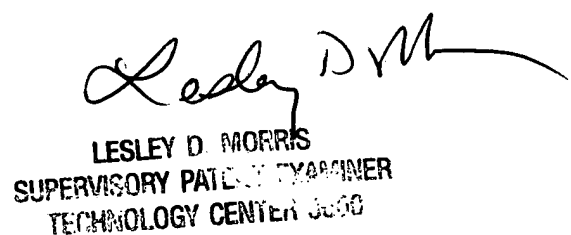 Lesley D Morris
LESLEY D. MORRIS
SUPERVISORY PATENT EXAMINER
TECHNOLOGY CENTER